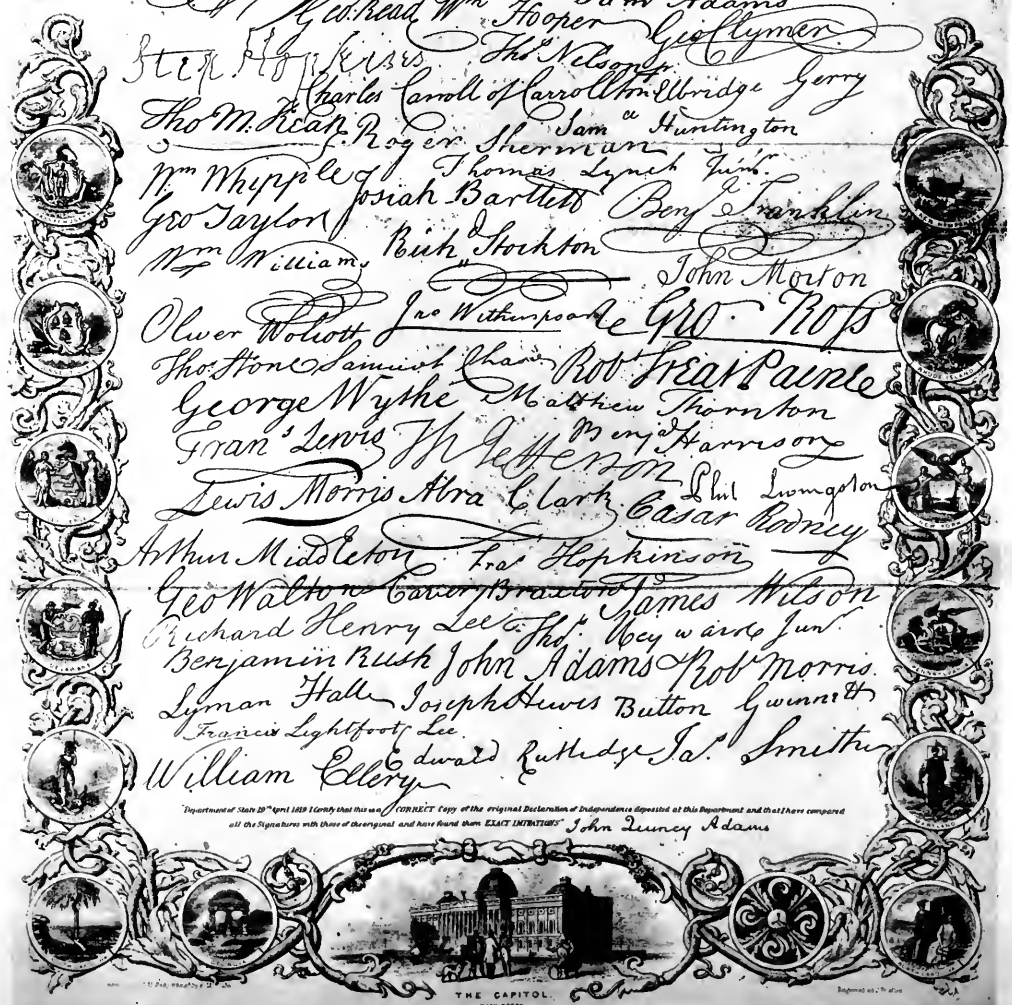 Geo. Read Wm Hooper Sam Adams
Step Hopkins Thos Nelson jr Geo Clymer
Charles Carroll of Carrollton Elbridge Gerry
Tho M. Kean Roger Sherman Saml Huntington
Wm Whipple Josiah Bartlett Thomas Lynch Junr.
Geo Taylor Richd Stockton Benj Franklin
Wm Williams John Morton
Oliver Wolcott Jno Witherspoon Geo. Ross
Thos Stone Samuel Chase Robt Treat Paine
George Wythe Matthew Thornton
Frans Lewis Th Jefferson Benja Harrison
Lewis Morris Abra Clark Phil Livingston
Casar Rodney
Arthur Middleton Fras Hopkinson
Geo Walton Carter Braxton James Wilson
Richard Henry Lee Thos. Heyward Junr.
Benjamin Rush John Adams Robt Morris.
Lyman Hall Joseph Hewes Button Gwinnett
Francis Lightfoot Lee
William Ellery Edward Rutledge Jas. Smith
"Department of State 19th April 1819 I Certify that this is a CORRECT Copy of the original Declaration of Independence deposited at this Department and that I have compared
all the Signatures with those of the original and have found them EXACT IMITATIONS" John Quincy Adams
RHODE ISLAND
THE CAPITOL.